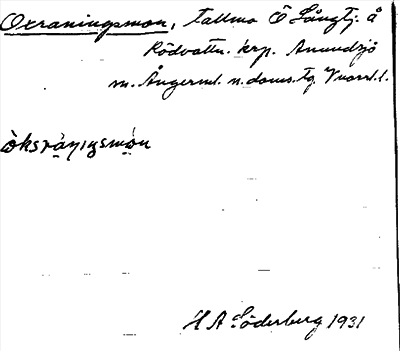 Oxraningsmon, tallmo Ö Långtj. å
Rödvattn. krp. Anundsjö
m. Ångerml. n. doms. tg. Vnorrl. l.
òksràni̯ŋsmón
H A Söderberg 1931